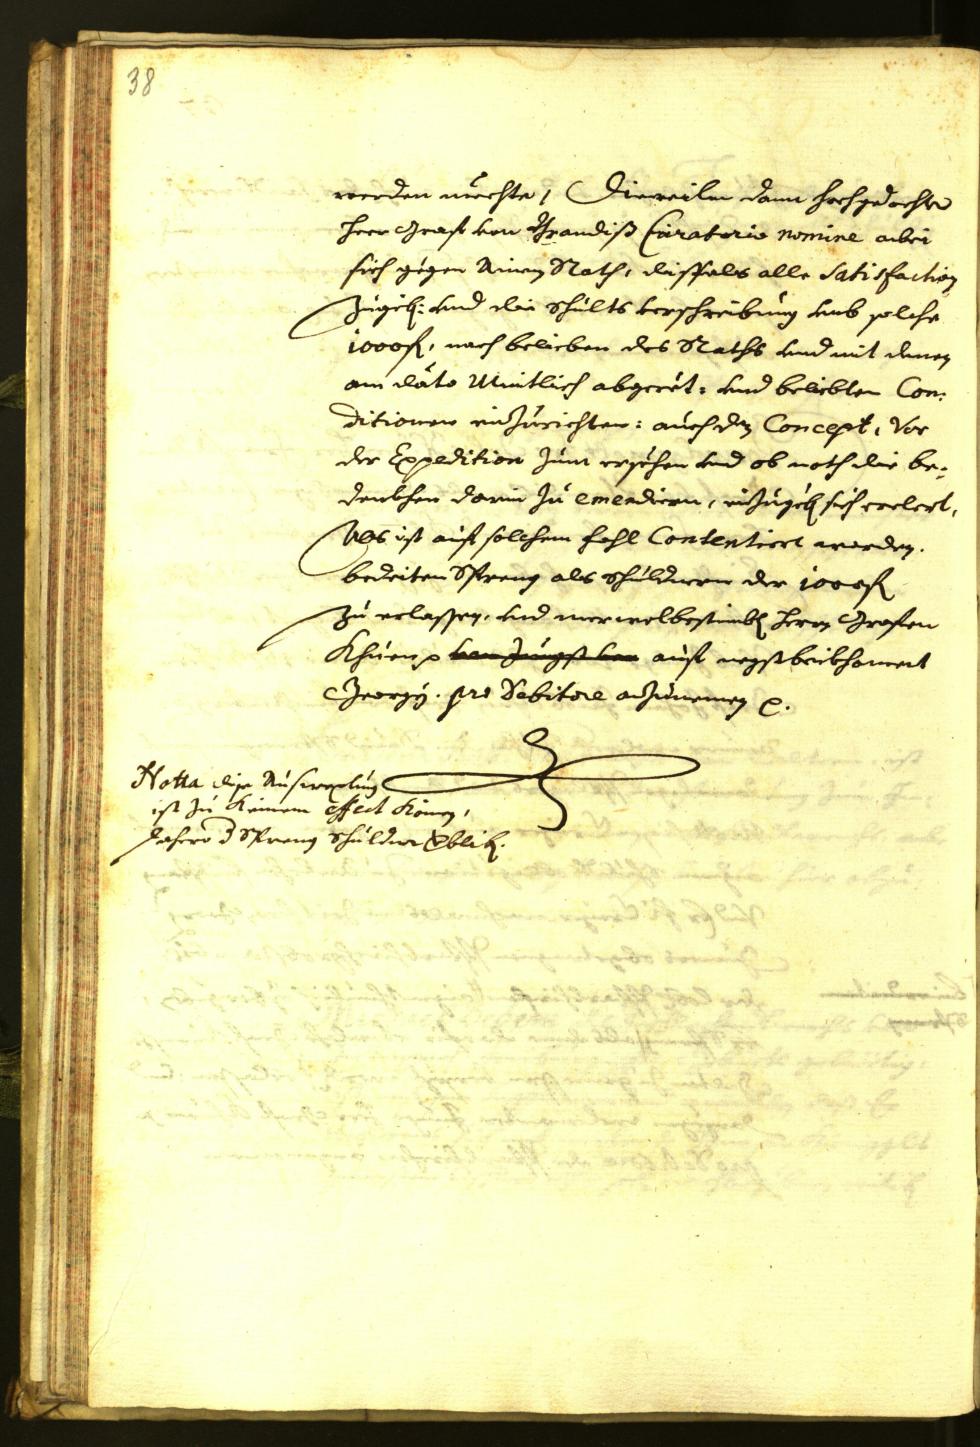 38
werden möchte, Dieweilen dann hochgedachte
Herr Graf von Brandiß Curatorio nomine aber
sich gegen Ainen Rath, dißfals alle Satisfaction
Zugeb: und die Schults verschreibung umb solche
1000 f, nach belieben des Raths und mit denen
am dato Mintlich abgeret: und beliebten Con-
ditionen einzurichten: auch den Concept, Vor
der Expedition zum ersehen und ob noch die be-
denkhen darin zu emendiern, einzugeben sich erclert,
Als ist auf solchem fahl Contentiert worden.
bedeiten Spreng als Schuldnern der 1000 f
Zu erlassen, und merwolbestimbten Herrn Grafen
Khuen auf negstkhoment
Georgy. pro Debitore anzunemen
Notta dise Auswexlung
ist zu Keinem effect Komen,
dahero d Spreng Schuldner verblib.